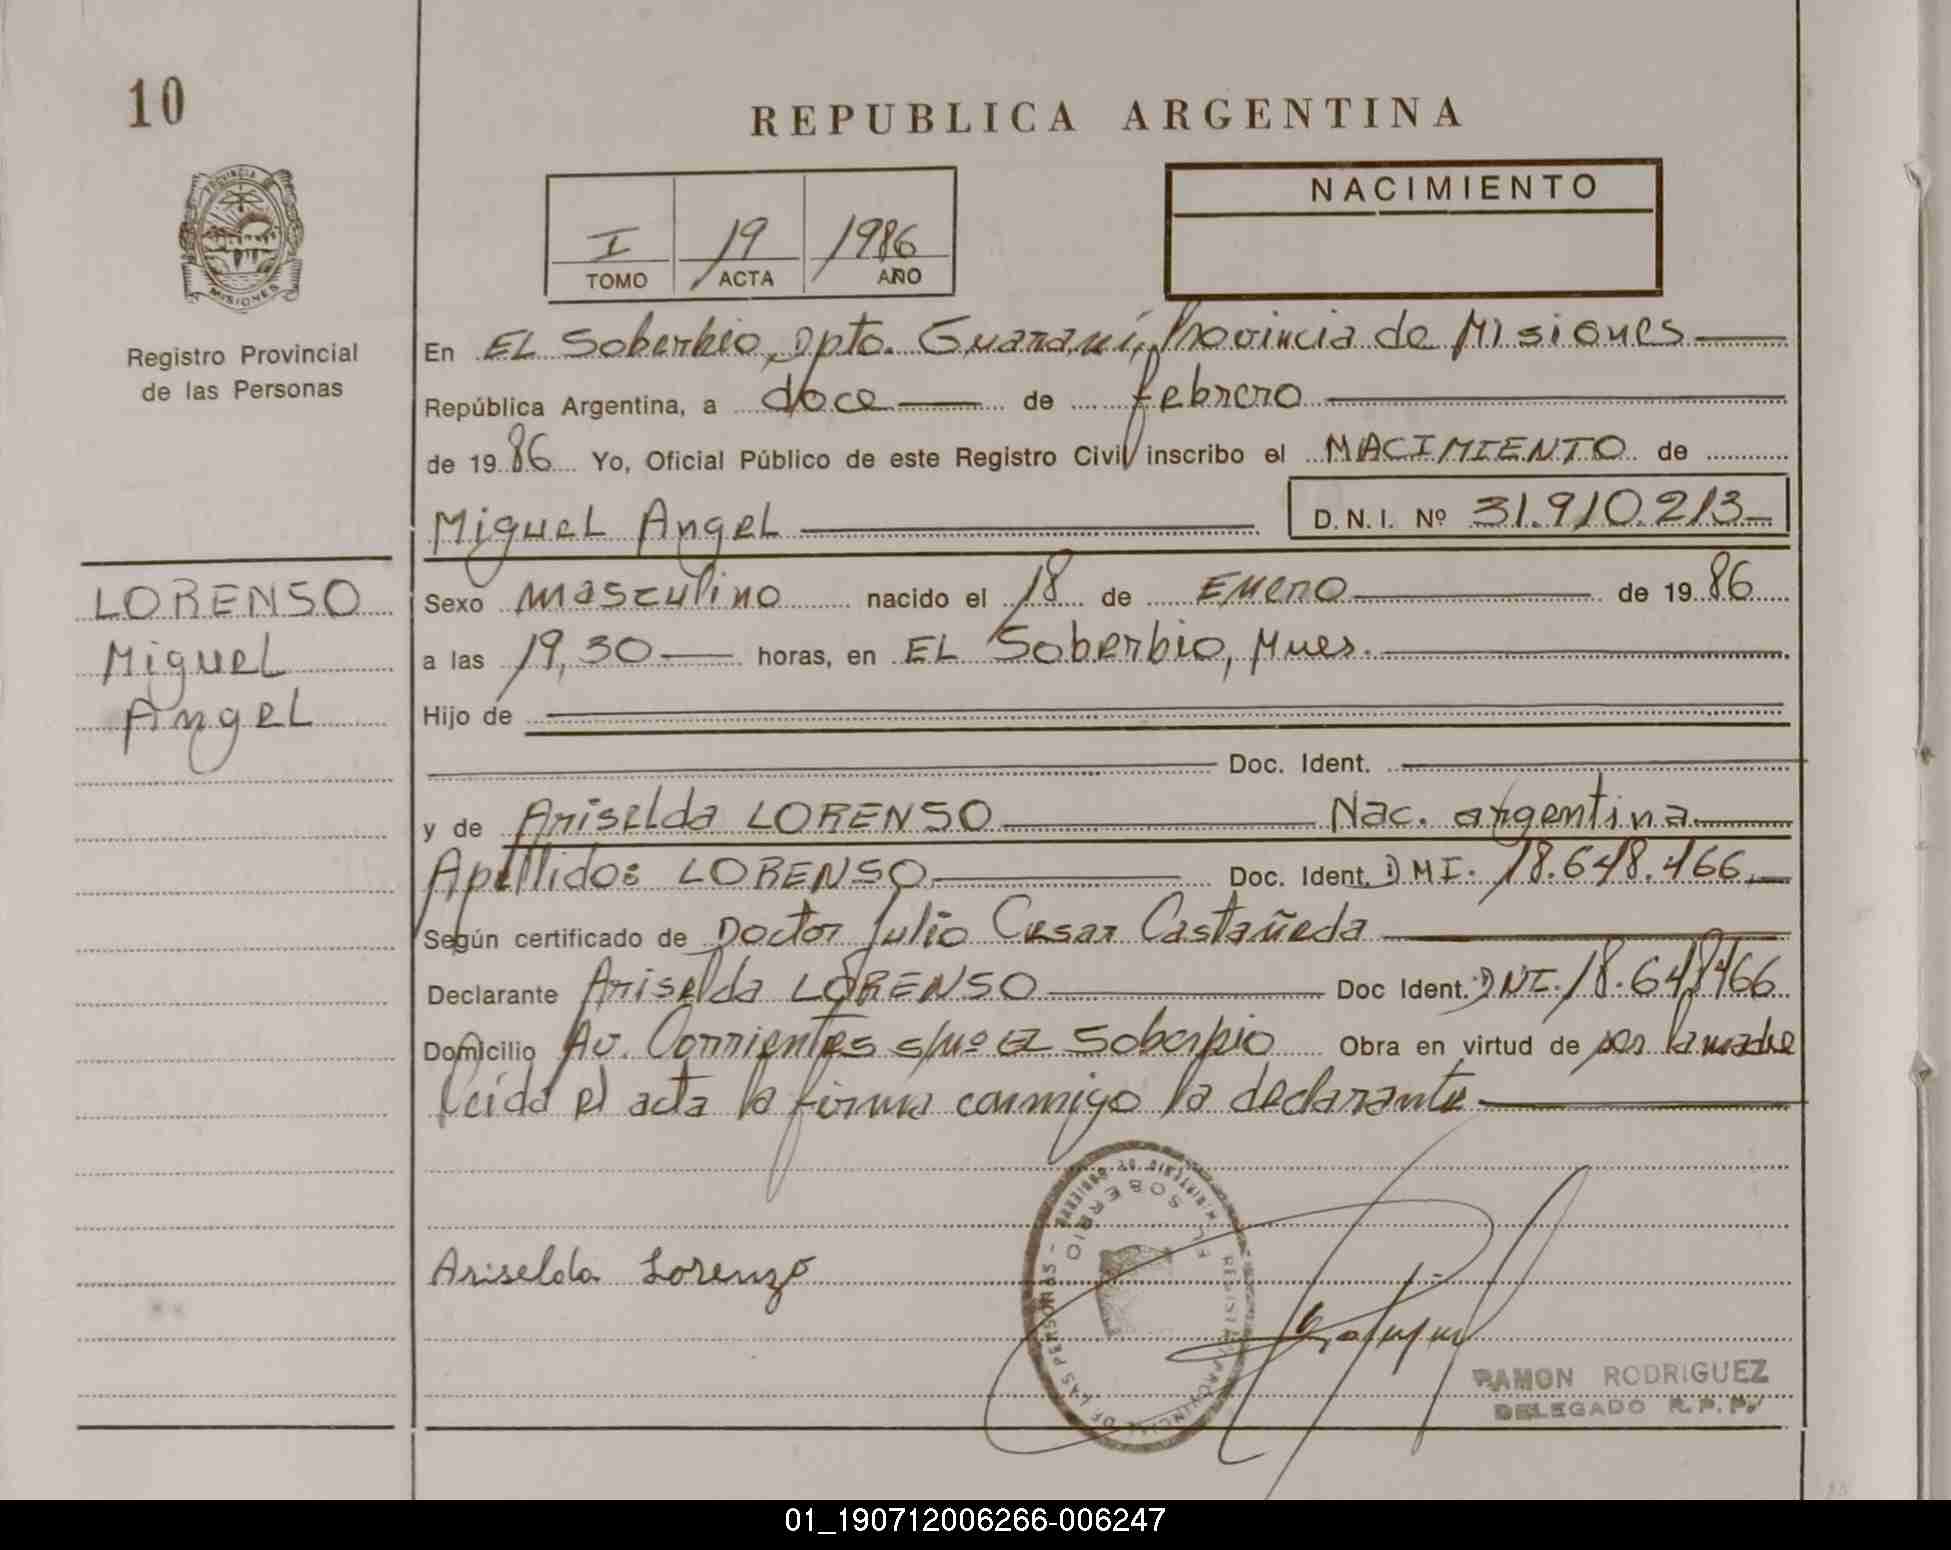 10
REPUBLICA ARGENTINA
PROVINCIA DE
MISIONES
Registro Provincial
de las Personas
I 19 1986
TOMO ACTA AÑO
NACIMIENTO
En EL Soberbio, Dpto. Guaraní, Provincia de Misiones
República Argentina, a doce de febrero
de 1986 Yo, Oficial Público de este Registro Civil inscribo el NACIMIENTO de
Miguel Angel D.N.I. Nº 31.910.213
LORENSO
Miguel
Angel
Sexo masculino nacido el 18 de Enero de 1986
a las 19,30 horas, en EL Soberbio, Mnes.
Hijo de
Doc. Ident.
y de Ariselda LORENSO Nac. argentina
Apellido: LORENSO Doc. Ident. DNI. 18.648.466
Según certificado de Doctor Julio Cesar Castañeda
Declarante Ariselda LORENSO Doc Ident. DNI. 18.648.466
Domicilio Av. Corrientes s/nº EL Soberbio Obra en virtud de ser la madre
Leída el acta la firma conmigo la declarante
Ariselda Lorenzo
MINISTERIO DE GOBIERNO - REGISTRO PROVINCIAL DE LAS PERSONAS -
EL SOBERBIO
RAMON RODRIGUEZ
DELEGADO R.P.P.
01_190712006266-006247